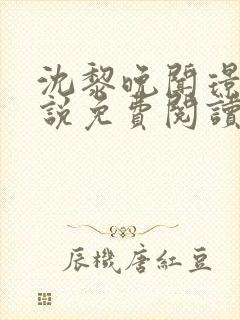 沈黎晚聞璟
說免費閱讀
辰機唐紅豆